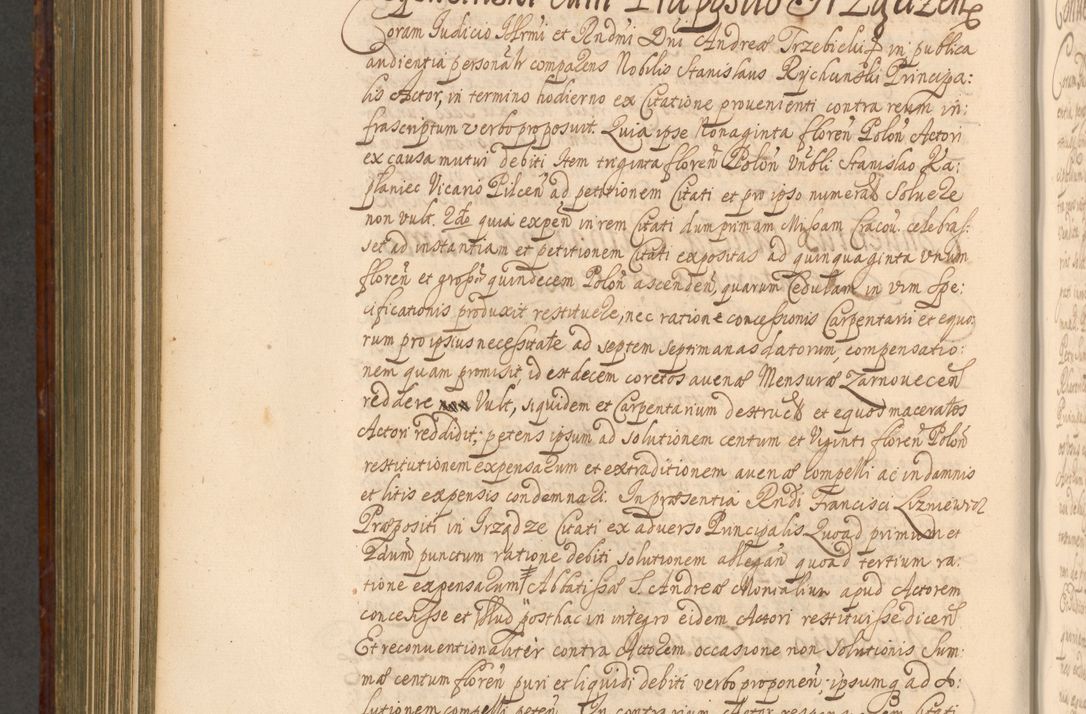 cum Præposito Irządzen
Coram Judicio Illmi et Rndmi Dni Andreæ Trzebicki Ep in publica
audientia personalr comparens Nobilis Stanislaus Rychunski Principa:
lis Actor, in termino hodierno ex Citatione provenienti contra reum in:
frascriptum verbo proposuit. Quia ipse Nonaginta floren Polon Actori
ex causa mutui debiti Item triginta floren Polon Vnbli Stanislao Ka:
planiec Vicario Pilcen ad petitionem Citati et pro ipso numeratos Solvere
non vult. 2do quia expen in rem Citati dum primam Missam Cracov. celebras:
set ad instantiam et petitionem Citati expositas ad quinquaginta unum
floren et grossos quindecem Polon ascenden, quarum Cedulam in vim spe:
cificationis produxit restituere, nec ratione concessionis Carpentarii et equo:
rum pro ipsius necessitate ad septem septimanas datorum, compensatio:
nem quam promisit, id est decem coretos avenæ Mensuræ Zarnovecen
reddere Vult, siquidem et Carpentarium destruct et equos maceratos
Actori reddidit; petens ipsum ad solutionem centum et Viginti floren Polon
restitutionem expensarum et extraditionem avenæ compelli ac in damnis
et litis expensis condemnari. In præsentia Rndi Francisci Lizniewsol
Præpositi in Irządze Citati ex adverso Principalis Quoad primum et
2dum punctum ratione debiti solutionem allegan quoad tertium ra:
tione expensarum Abbatissæ S. Andreæ Monialium apud Actorem
concessisse et illud posthac in integro eidem Actori restituisse dicen
Et reconventionaliter contra Actorem occasione non solutionis Sum:
mæ centum floren puri et liquidi debiti verbo proponen, ipsumq ad so:
lutionem compelli peten. In contrarium Actor